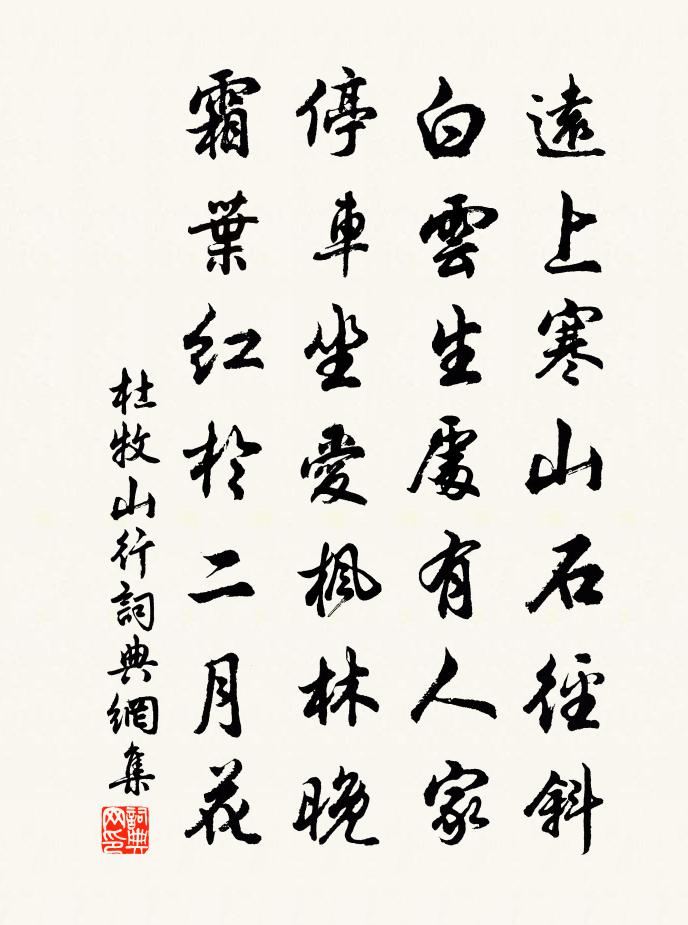 遠上寒山石徑斜
白雲生處有人家
停車坐愛楓林晚
霜葉紅於二月花
杜牧山行詞典網集
詞典网印